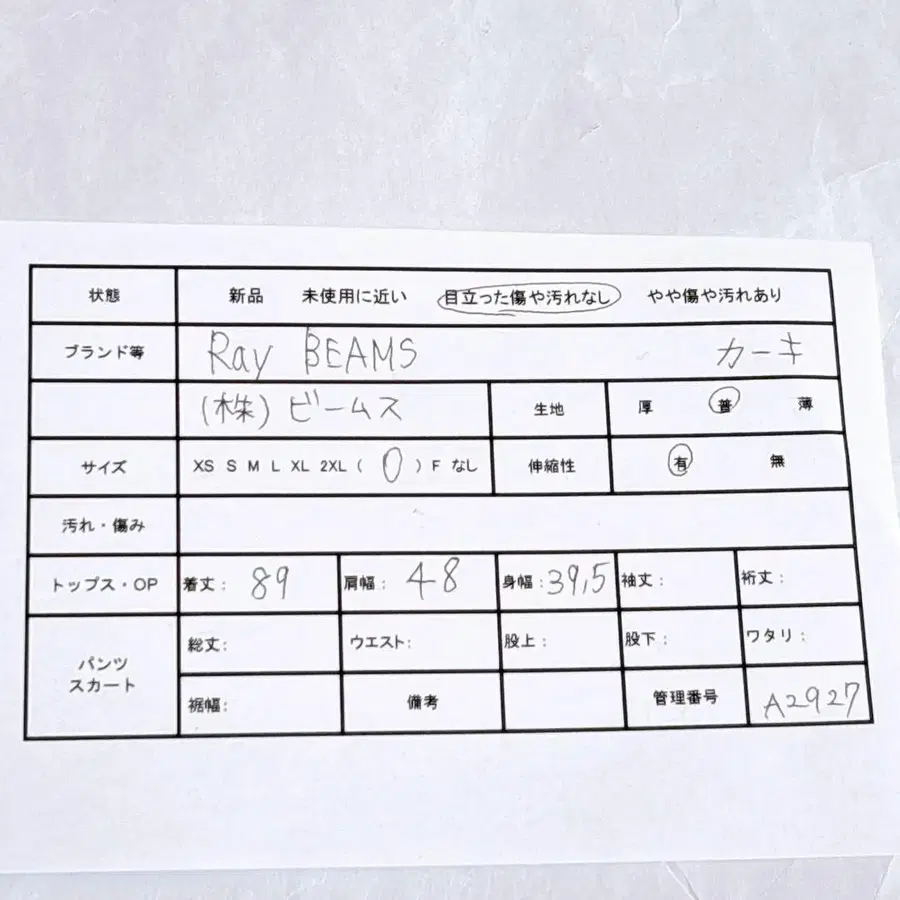 状態 新品 未使用に近い 目立った傷や汚れなし やや傷や汚れあり
ブランド等 Ray BEAMS カーキ
(株)ビームス 生地 厚 普 薄
サイズ XS S M L XL 2XL ( 0 ) F なし 伸縮性 有 無
汚れ・傷み
トップス・OP 着丈: 89 肩幅: 48 身幅: 39,5 袖丈: 裄丈:
パンツ
スカート
総丈: ウエスト: 股上: 股下: ワタリ:
裾幅: 備考 管理番号 A2927